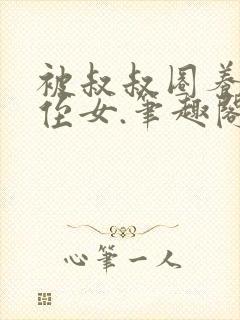 被叔叔圈养
侄女.笔趣阁
心笔一人